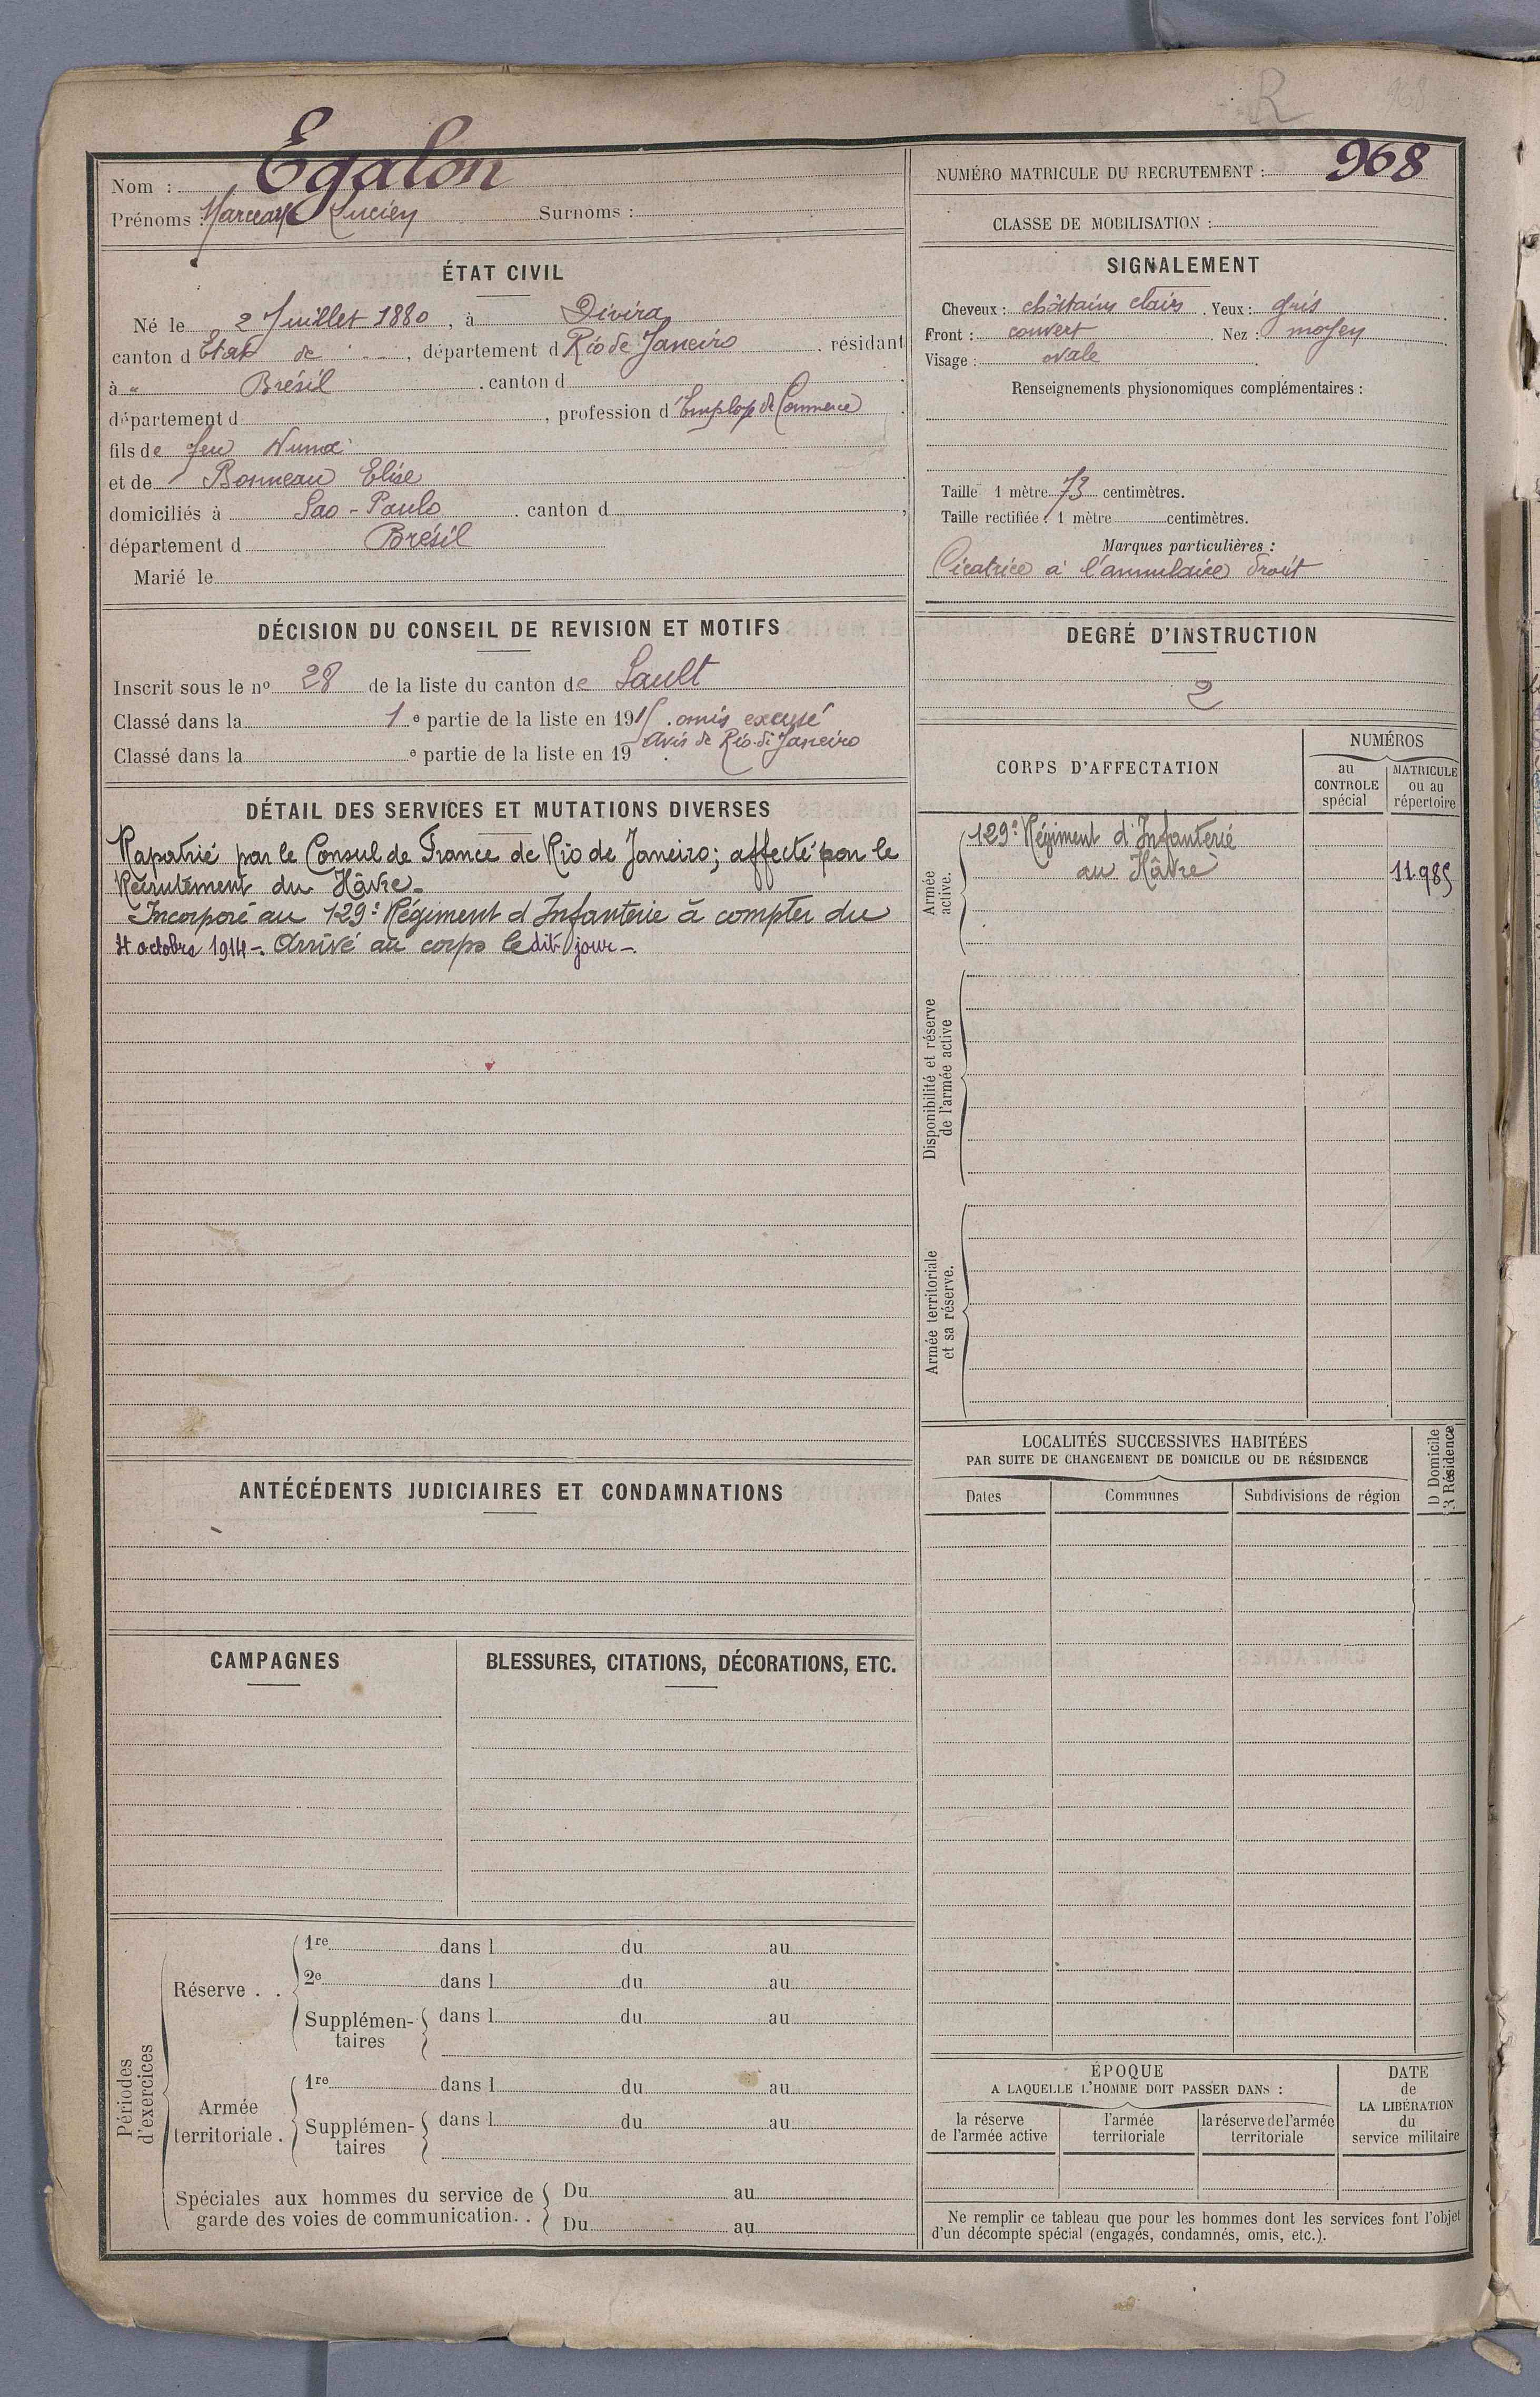 R
968
Nom : Egalon
Prénoms : Marceau Lucien Surnoms :
ÉTAT CIVIL
Né le 2 Juillet 1880, à Divira
canton d Etat de , département d Rio de Janeiro . résidant
à " Brésil . canton d
département d , profession d'Employé de Commerce
fils de feu Numa
et de Bonneau Elise
domiciliés à Sao-Paulo . canton d ,
département d Brésil
Marié le
DÉCISION DU CONSEIL DE REVISION ET MOTIFS
Inscrit sous le nº 28 de la liste du canton de Sault
Classé dans la 1 e partie de la liste en 1915. omis excusé
Avis de Rio de Janeiro
Classé dans la e partie de la liste en 19 .
DÉTAIL DES SERVICES ET MUTATIONS DIVERSES
Rapatrié par le Consul de France de Rio de Janeiro; affecté par le
Recrutement du Hâvre.
Incorporé au 129e Régiment d Infanterie à compter du
4 octobre 1914-. Arrivé au corps le dit jour-.
ANTÉCÉDENTS JUDICIAIRES ET CONDAMNATIONS
CAMPAGNES
BLESSURES, CITATIONS, DÉCORATIONS, ETC.
Périodes d'exercices
Réserve . .
1re dans l du au
2e dans l du au
Supplémen-taires dans l du au
Armée territoriale .
1re dans l du au
Supplémen-taires dans l du au
Spéciales aux hommes du service de garde des voies de communication. .
Du au
Du au
NUMÉRO MATRICULE DU RECRUTEMENT : 968
CLASSE DE MOBILISATION :
SIGNALEMENT
Cheveux : châtains clairs . Yeux : gris .
Front : couvert . Nez : moyen
Visage : ovale .
Renseignements physionomiques complémentaires :
Taille 1 mètre 73 centimètres.
Taille rectifiée : 1 mètre centimètres.
Marques particulières :
Cicatrice à l'annulaire droit
DEGRÉ D'INSTRUCTION
2
CORPS D'AFFECTATION
NUMÉROS
au CONTROLE spécial
MATRICULE ou au répertoire
Armée active.
129e Régiment d'Infanterie
au Hâvre 11985
Disponibilité et réserve de l'armée active
Armée territoriale et sa réserve.
LOCALITÉS SUCCESSIVES HABITÉES
PAR SUITE DE CHANGEMENT DE DOMICILE OU DE RÉSIDENCE
D Domicile
R Résidence
Dates Communes Subdivisions de région
ÉPOQUE
A LAQUELLE L'HOMME DOIT PASSER DANS :
la réserve de l'armée active
l'armée territoriale
la réserve de l'armée territoriale
DATE de LA LIBÉRATION du service militaire
Ne remplir ce tableau que pour les hommes dont les services font l'objet
d'un décompte spécial (engagés, condamnés, omis, etc.).